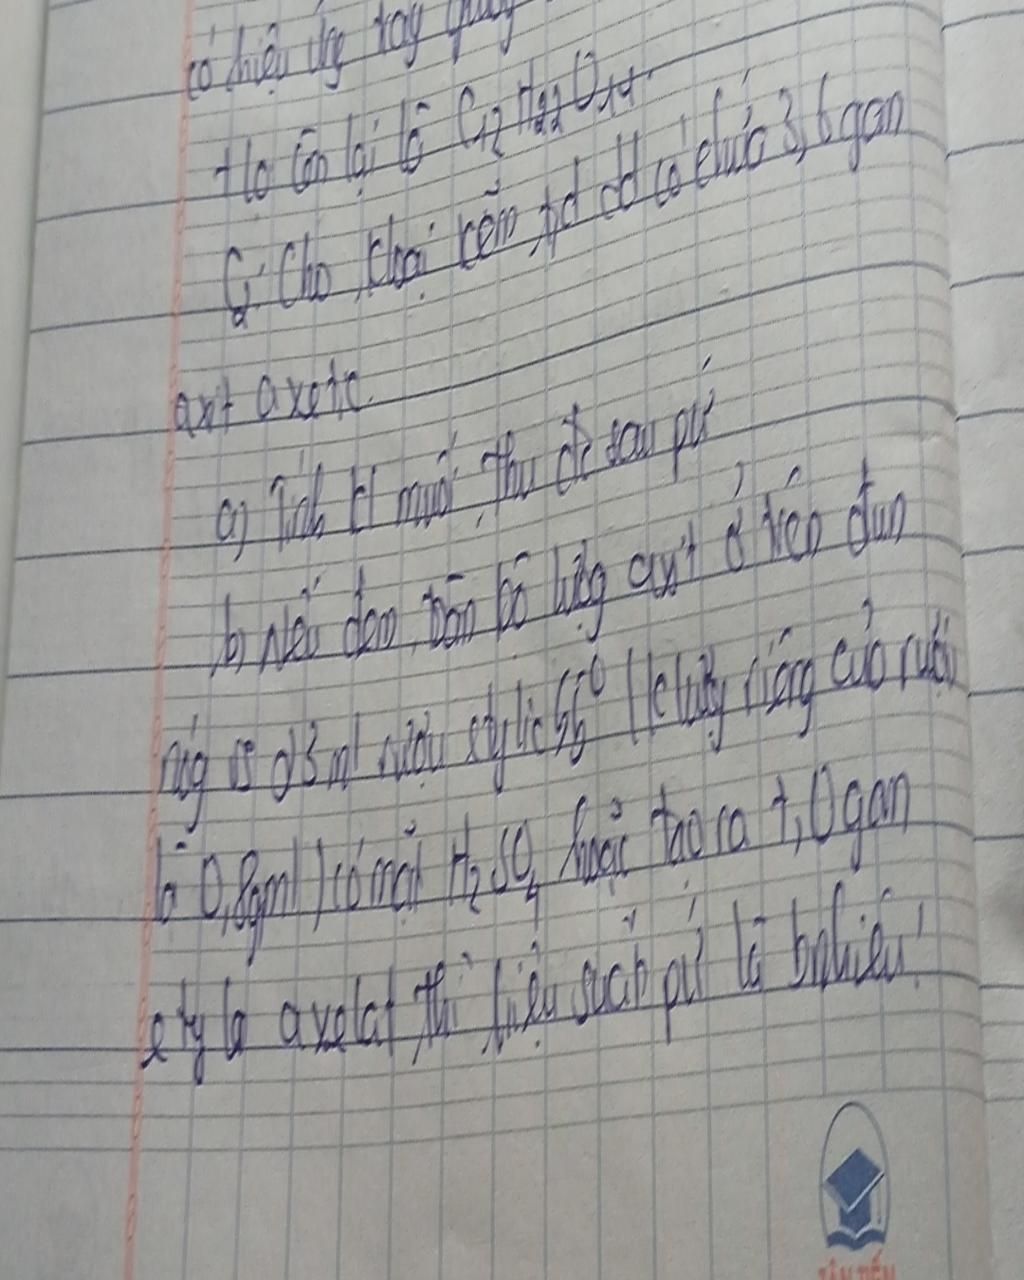 có hiệu ứng tay
+ lọ còn lại là C12H22O11
C2: Cho kloại kẽm td dd có chứa 3,6 gan
axit axetic
a) Tính kl muối thu đc sau pứ
b) Nếu đem toàn bộ lượng axit ở trên đun
nóg 23 ml rượu etylic (klượng riêng của rượu
là 0,8g/ml) có mặt H2SO4 hoặc tạo ra gan
etyla axelat thì hiệu suất pứ là bnhiêu?
TÂN TIẾN